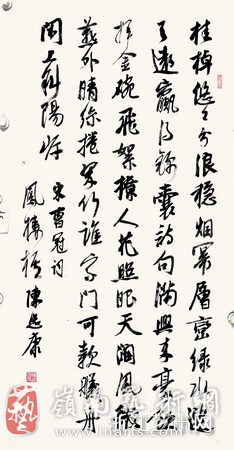 桂棹悠々分浪穩烟冪層巒綠水連
天遠贏得錦囊詩句滿興來豪飲
揮金碗飛絮撩人花照眼天闊風微
燕外晴絲捲翠竹誰家門可款艤舟
閑上斜陽岸
宋曹冠詞
鳳棲梧 陳 康
藝
嶺南藝術網